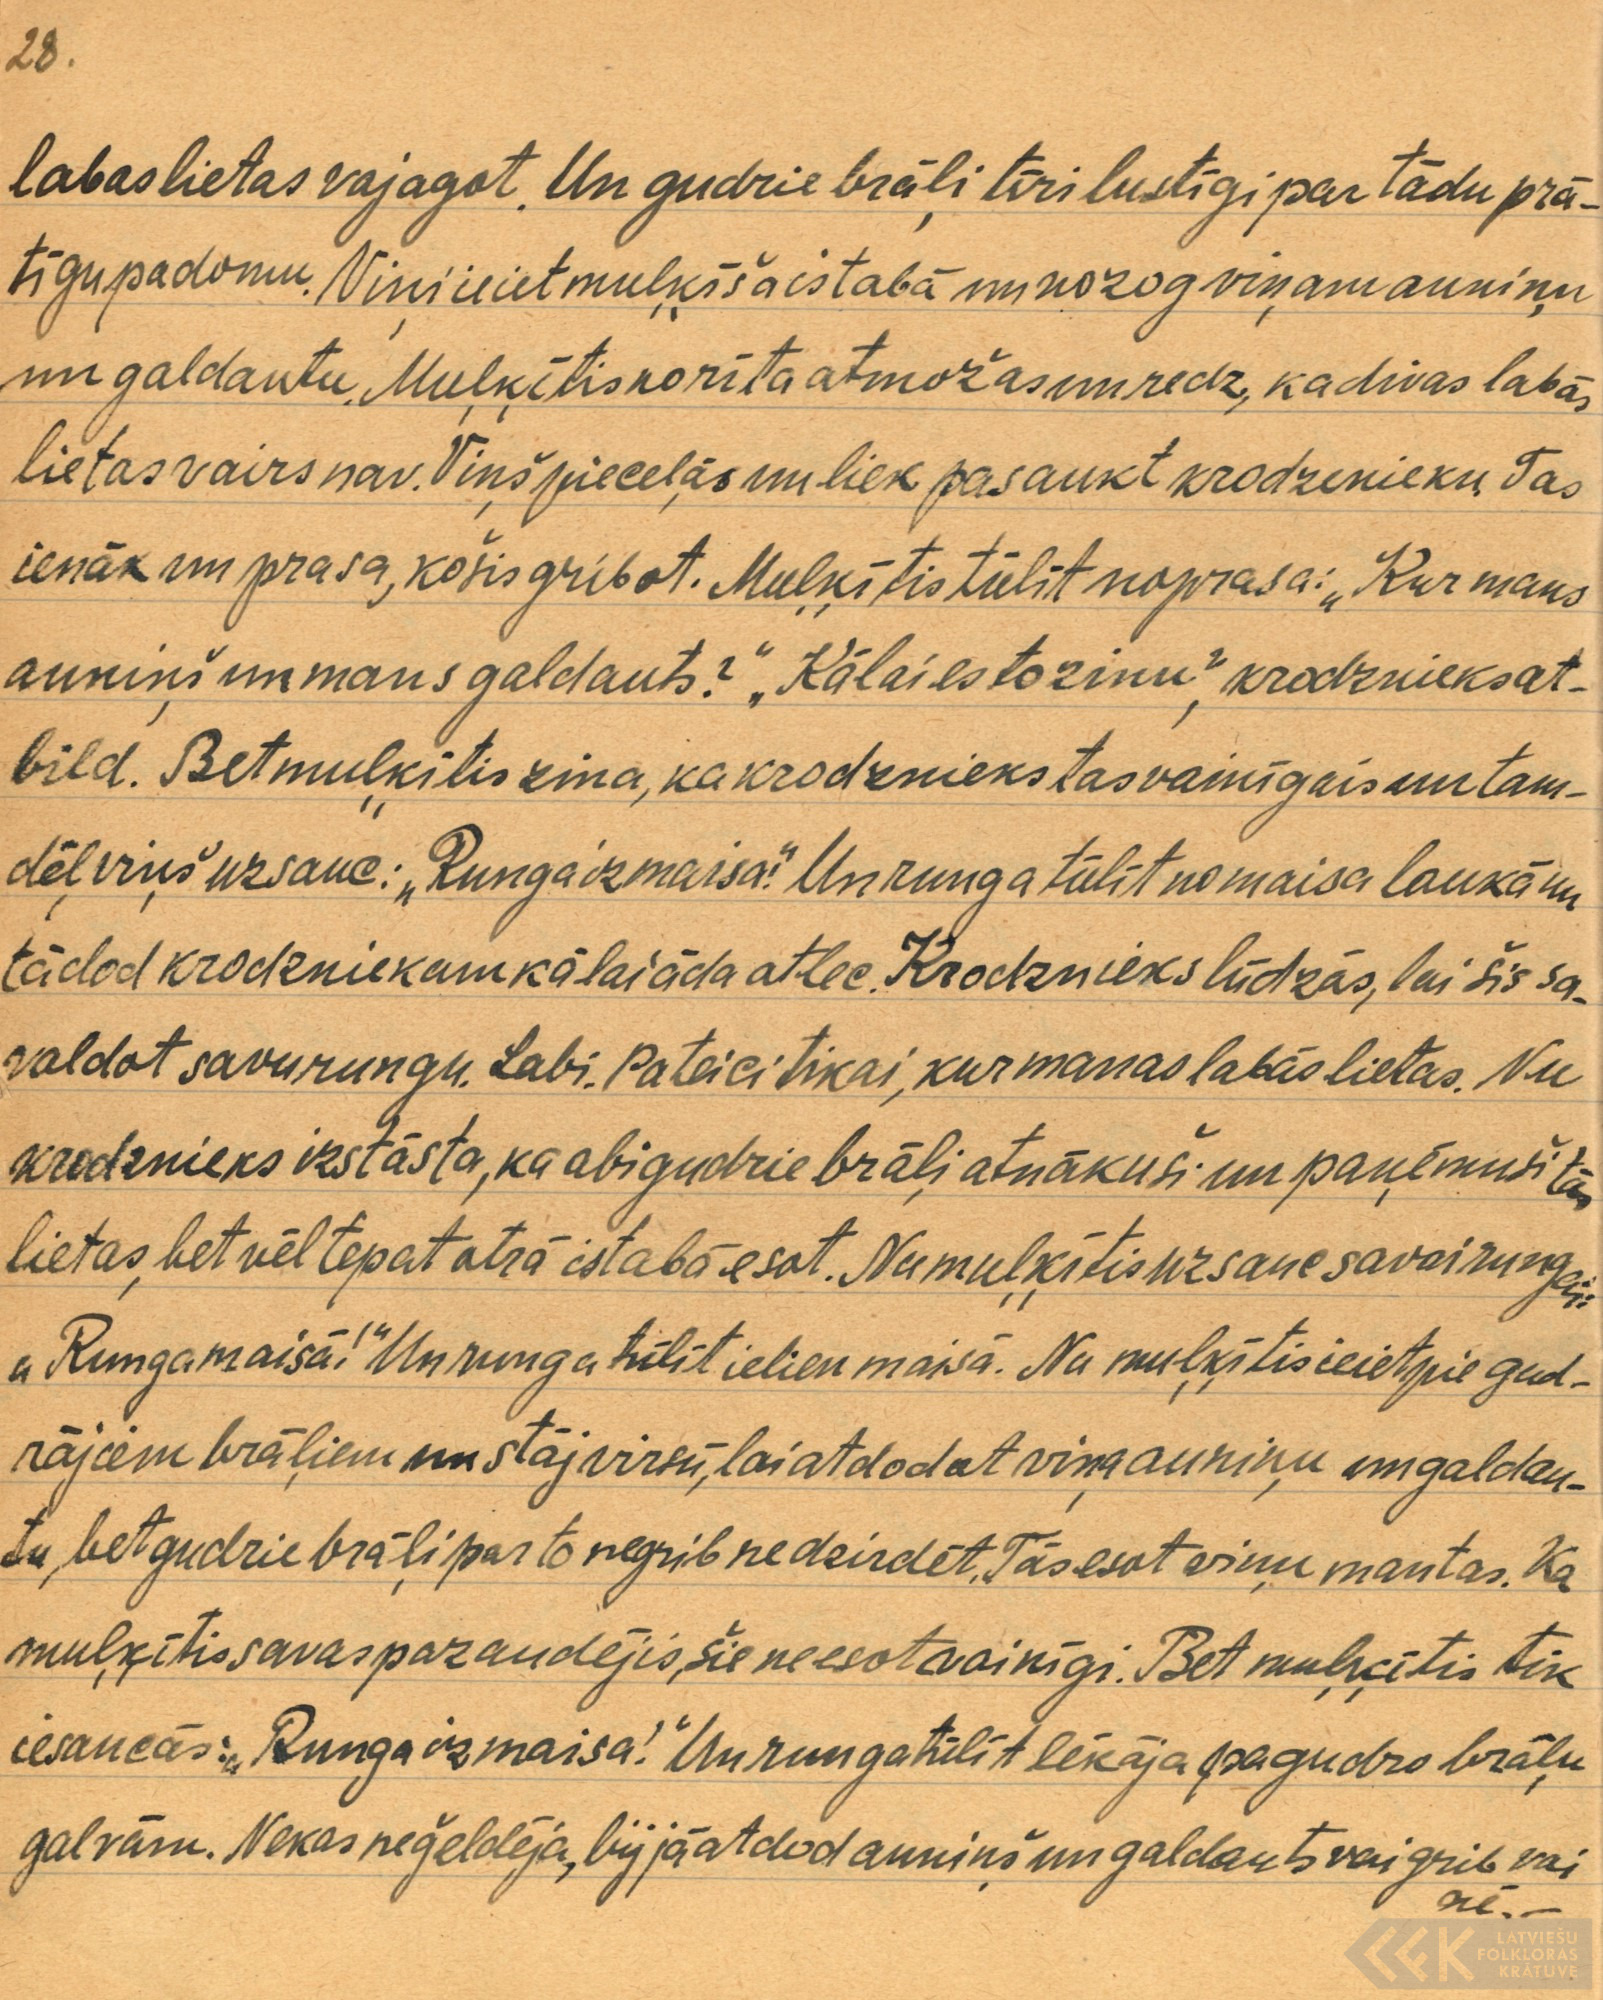 28.
labas lietas vajagot. Un gudrie brāļi tīri lustīgi par tādu prā-
tīgu padomu. Viņi ieiet muļķīša istabā un nozog viņam auniņu
un galdautu. Muļķītis no rīta atmožas un redz, ka divas labās
lietas vairs nav. Viņš pieceļās un liek pasaukt krodzenieku. Tas
ienāk un prasa, ko šis gribot. Muļķītis tūlīt noprasa: „Kur mans
auniņš un mans galdauts?“ „Kā lai es to zinu“, krodznieks at-
bild. Bet muļķītis zina, ka krodznieks tas vainīgais un tam-
dēļ viņš uzsauc: „Runga iz maisa!“ Un runga tūlīt no maisa laukā un
tā dod krodzniekam kā lai āda atlec. Krodznieks lūdzās, lai šis sa-
valdot savu rungu. Labi. Pateici tikai, kur manas labās lietas. Nu
krodznieks izstāsta, ka abi gudrie brāļi atnākuši un paņēmuši tās
lietas, bet vēl tepat otrā istabā esot. Nu muļķītis uzsauc savai rungai:
„Runga maisā!“ Un runga tūlīt ielien maisā. Nu muļķītis ieiet pie gud-
rājiem brāļiem un stāj virsū, lai atdodot viņa auniņu un galdau-
tu, bet gudrie brāļi par to negrib ne dzirdēt. Tās esot viņu mantas. Ka
muļķītis savas pazaudējis, šie neesot vainīgi. Bet muļķītis tik
iesaucās: „Runga iz maisa!“ Un runga tūlīt lēkāja pa gudro brāļu
galvām. Nekas neģeldēja, bij jāatdod auniņš un galdauts vai grib vai
nē. —
LATVIEŠU
FOLKLORAS
KRĀTUVE